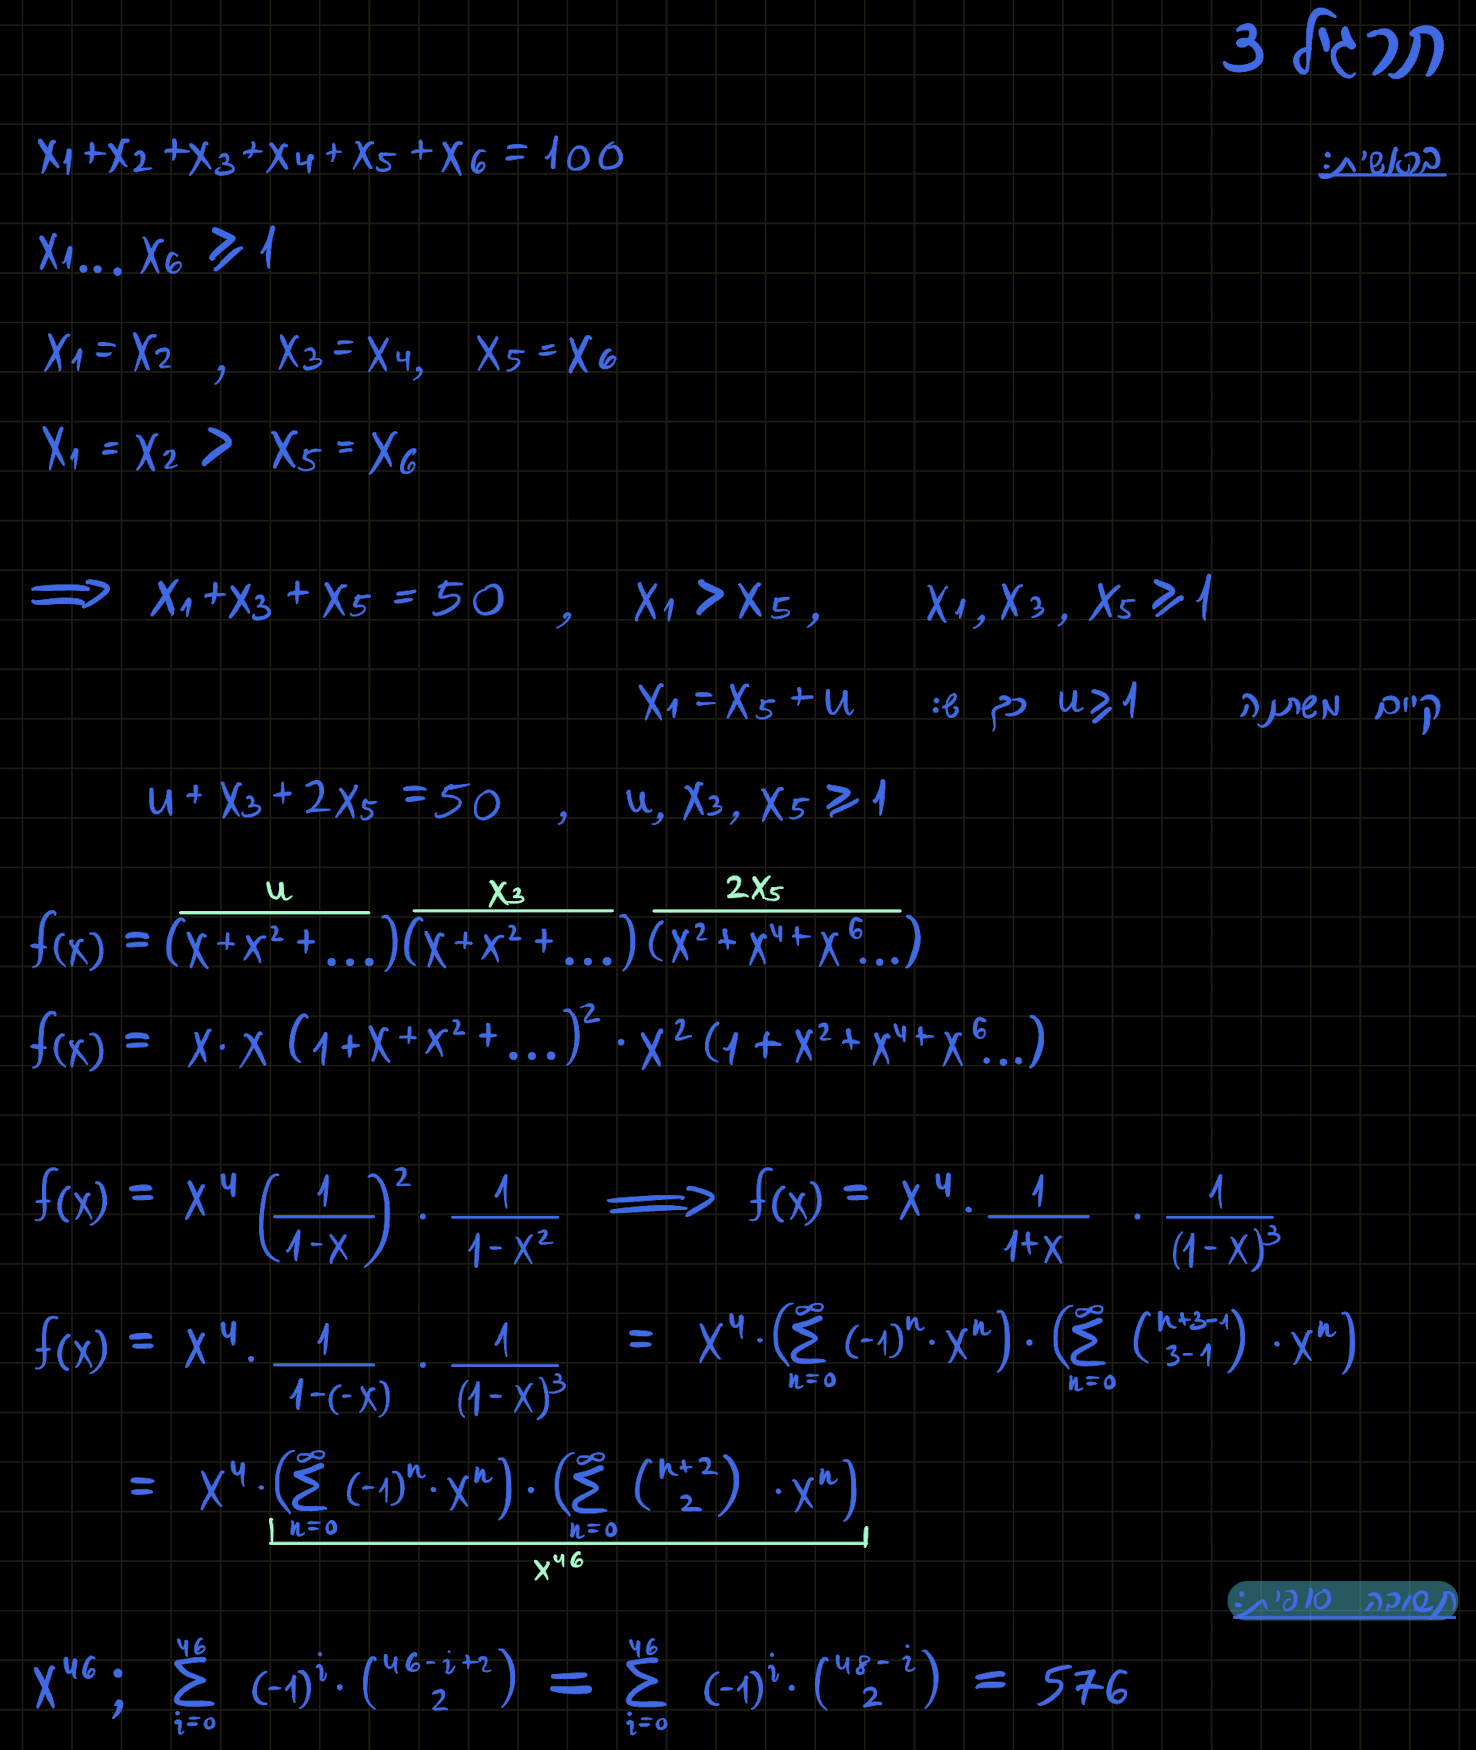 תרגיל 3
בראשית:
x₁+x₂+x₃+x₄+x₅+x₆=100
x₁...x₆ ⩾ 1
x₁=x₂ , x₃=x₄, x₅=x₆
x₁=x₂ > x₅=x₆
⟹ x₁+x₃+x₅=50 , x₁>x₅, x₁,x₃,x₅⩾1
קיים משתנה u⩾1 כך ש: x₁=x₅+u
u+x₃+2x₅=50 , u,x₃,x₅⩾1
u x₃ 2x₅
f(x) = (x+x²+...)(x+x²+...)(x²+x⁴+x⁶...)
f(x) = x·x(1+x+x²+...)²·x²(1+x²+x⁴+x⁶...)
f(x) = x⁴(1/(1-x))²·1/(1-x²) ⟹ f(x) = x⁴·1/(1+x)·1/(1-x)³
f(x) = x⁴·1/(1-(-x))·1/(1-x)³ = x⁴·(∑_{n=0}^{∞} (-1)ⁿ·xⁿ)·(∑_{n=0}^{∞} \binom{n+3-1}{3-1}·xⁿ)
= x⁴·(∑_{n=0}^{∞} (-1)ⁿ·xⁿ)·(∑_{n=0}^{∞} \binom{n+2}{2}·xⁿ)
x⁴⁶
תשובה סופית:
x⁴⁶; ∑_{i=0}^{46} (-1)ⁱ·\binom{46-i+2}{2} = ∑_{i=0}^{46} (-1)ⁱ·\binom{48-i}{2} = 576